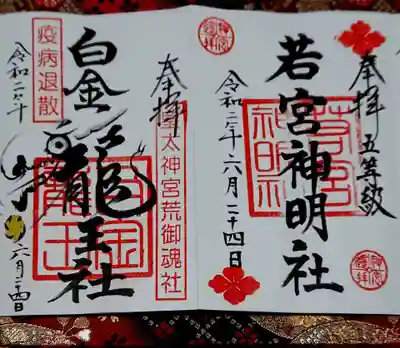 奉拝 五等級
若宮神明社
若宮
神明社
令和二年六月二十四日
奉拝
皇太神宮荒御魂社
白金龍王社
白金
龍王
疫病退散
令和二年
六月二十四日